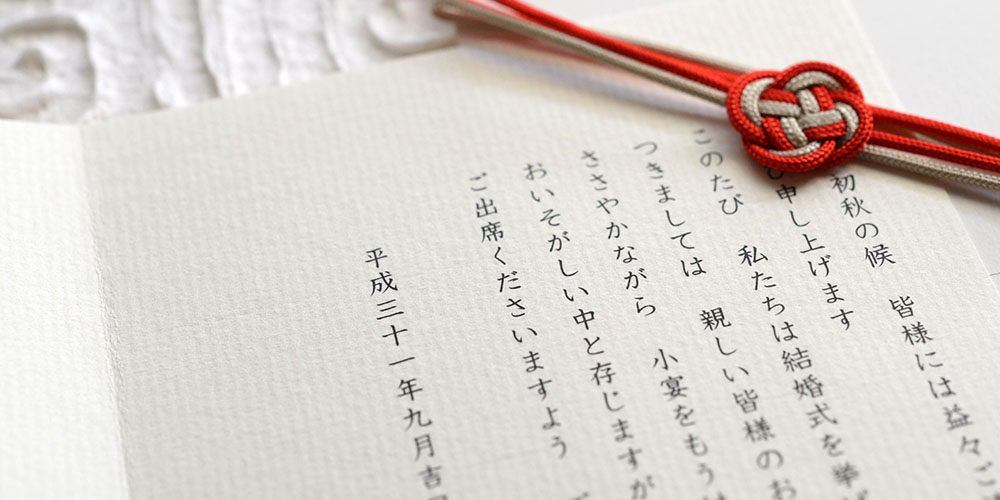 初秋の候　皆様には益々ご
申し上げます
このたび　私たちは結婚式を挙
つきましては　親しい皆様のお
ささやかながら　小宴をもう
おいそがしい中と存じますが
ご出席くださいますよう
平成三十一年九月吉